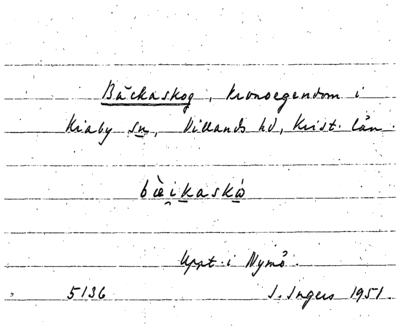 Bäckaskog, kronoegendom i
Kiaby sn, Villands hd, Krist. län.
bæ̀i̯kaskȯ
Uppt. i Nymö.
5136 I. Ingers 1951.